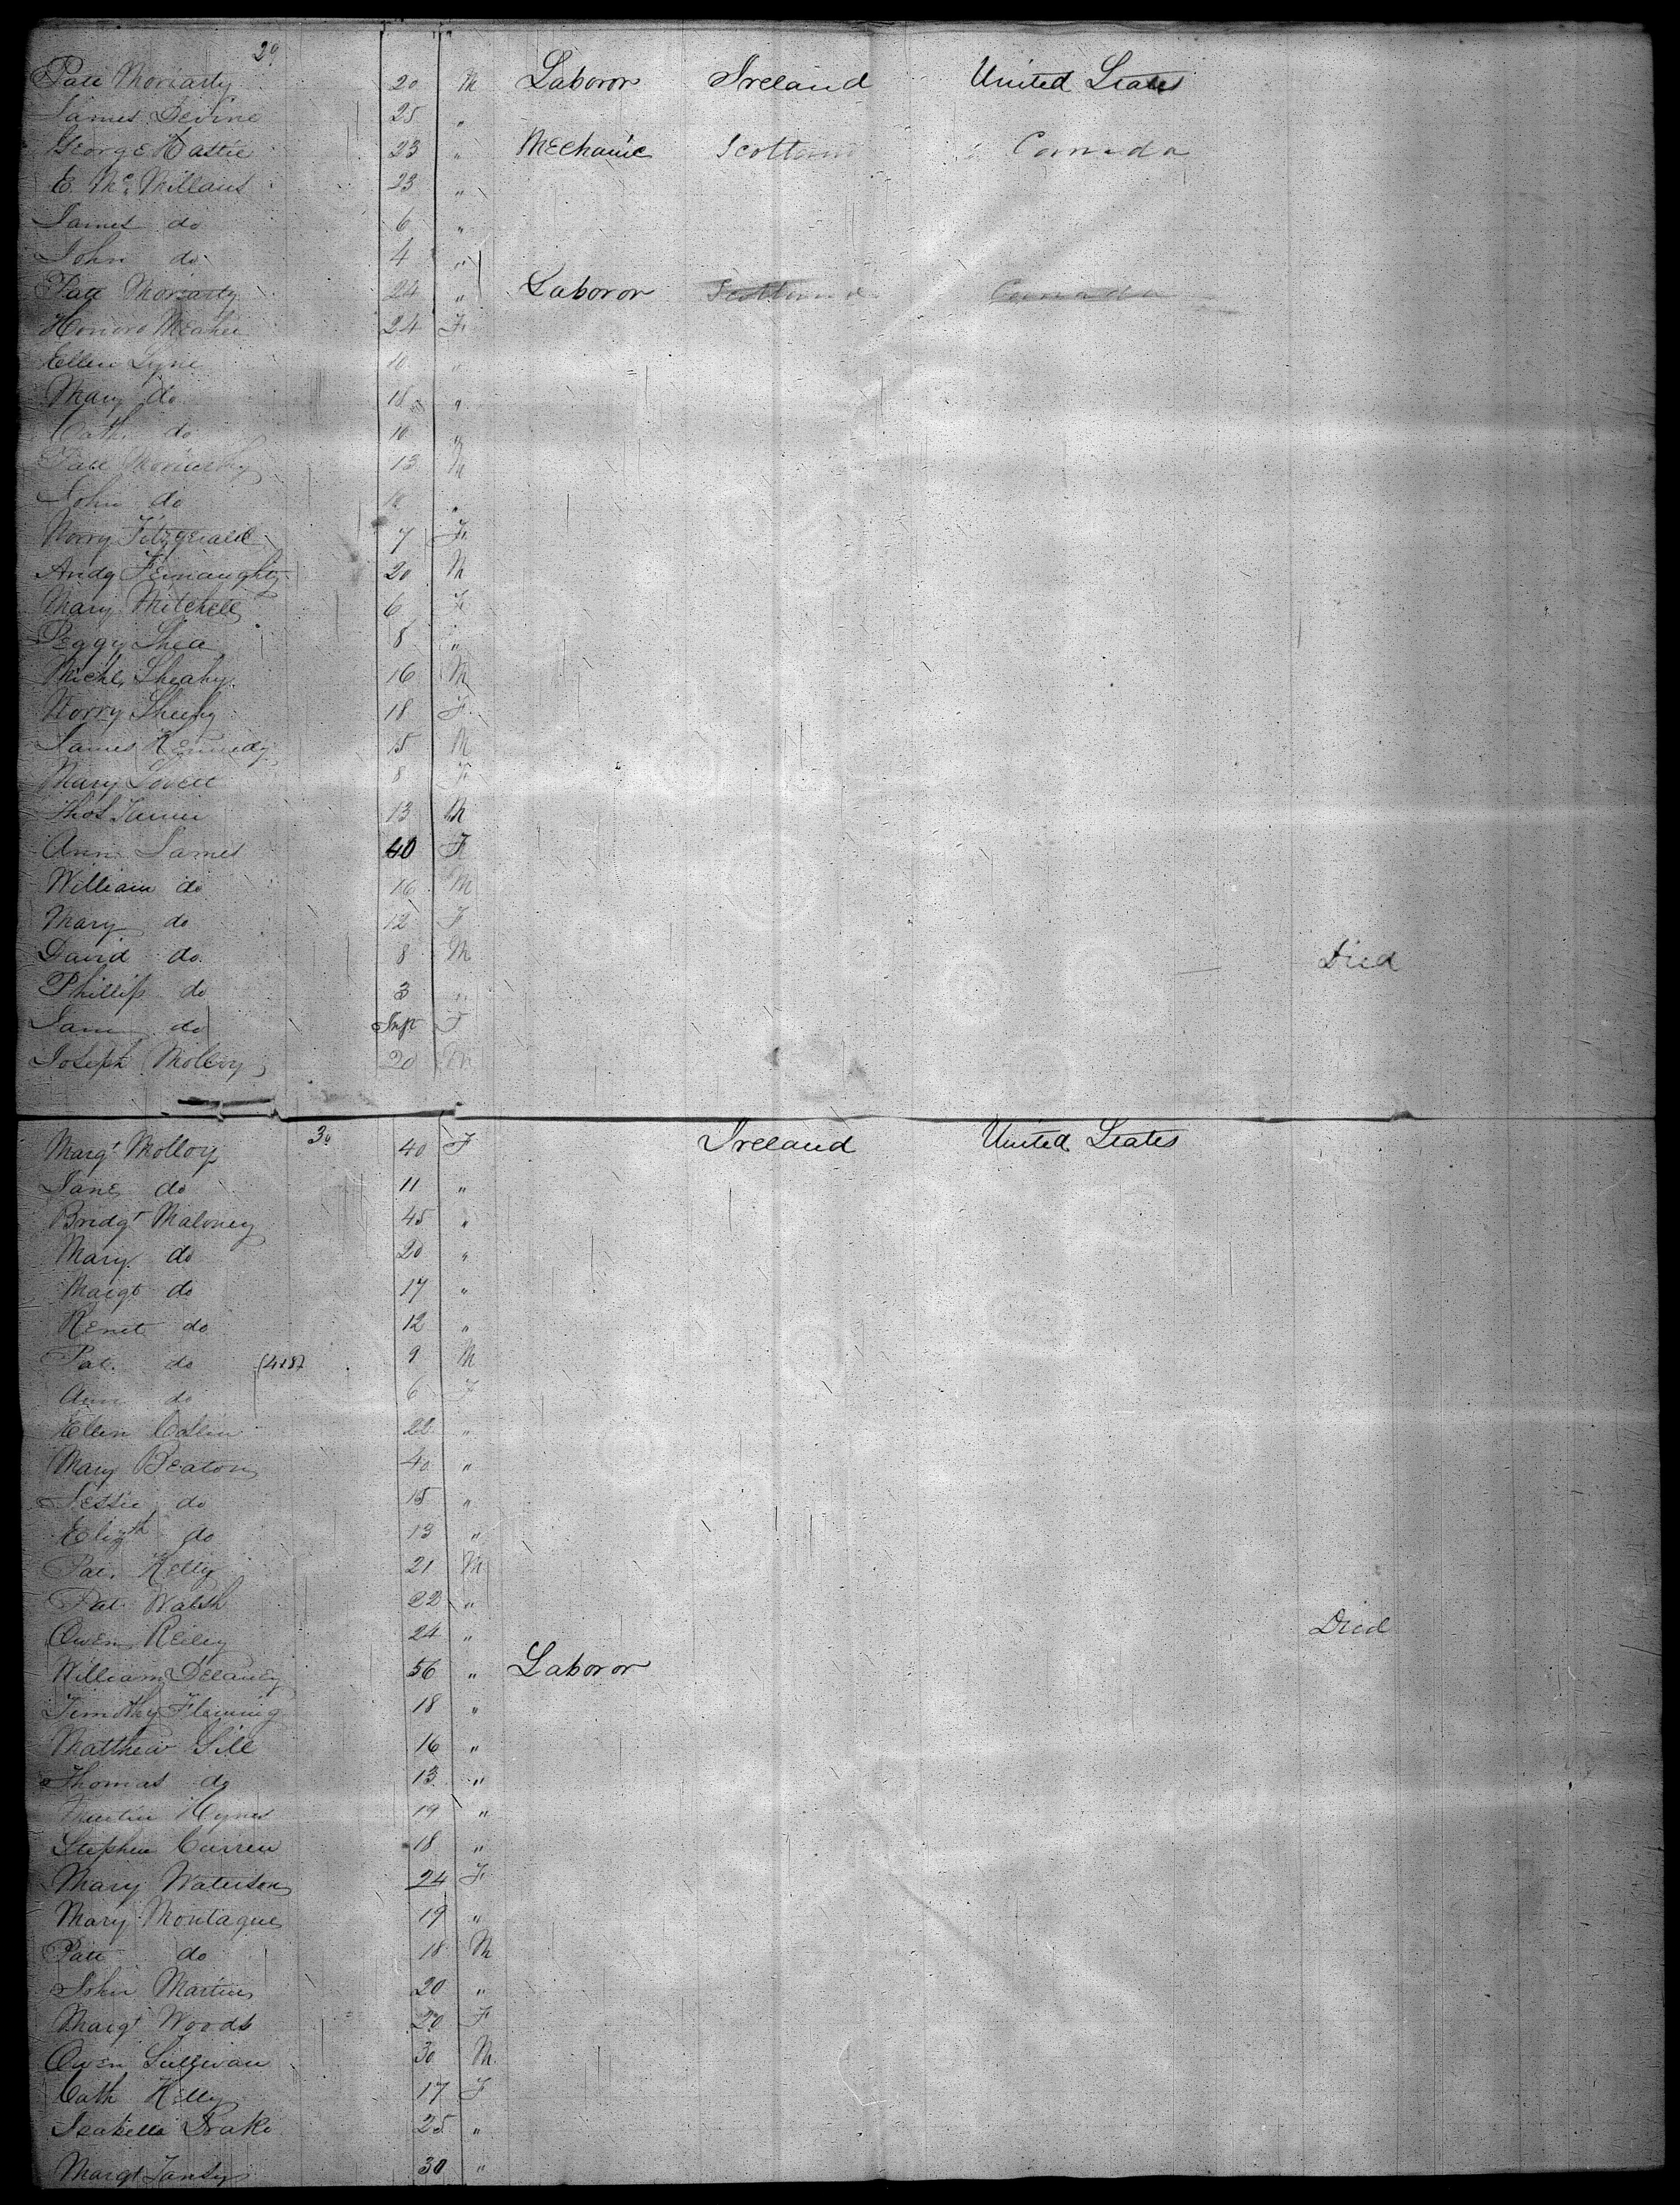 29
Patt Moriarty 20 M Laboror Ireland United States
James Devine 25 "
George Hastie 23 " Mechanic Scotland Canada
E. Mc Millans 23 "
James do 6 "
John do 4 "
Patt Moriarty 24 " Laboror Scotland Canada
Honoro 24 F
Ellen Lyne "
Mary do 18 "
Cath do 16 "
Patt Moriarthy 13 M
John do "
Norry Fitzgerald 7 F
Andy 20 M
Mary Mitchell 6 F
Peggy Shea 8 "
Michl Sheahy 16 M
Norry Sheehy 18 F
James Kennedy 15 M
Mary 8 F
Thos 13 M
Ann James 40 F
William do 16 M
Mary do 12 F
David do 8 M Died
Phillip do 3 "
Jane do Inft F
Joseph Molloy 20 M
30
Margt Molloy 40 F Ireland United States
Jane do 11 "
Bridgt Maloney 45 "
Mary do 20 "
Margt do 17 "
do 12 "
Pat. do (418) 9 M
Ann do 6 F
Ellen 22 "
Mary Beaton 40 "
Jessie do 15 "
Elizth do 13 "
Pat. Kelly 21 M
Pat. Walsh 22 "
Owen Reiley 24 " Died
William Delaney 56 " Laboror
Timothy Fleming 18 "
Matthew Sill 16 "
Thomas do 13 "
Martin Hynes 19 "
Stephen Curren 18 "
Mary Waterson 24 F
Mary Montague 19 "
Patt do 18 M
John Martin 20 "
Margt Woods 20 F
Owen Sullivan 30 M
Cath Kelly 17 F
Isabella Drake 25 "
Margt Tansy 30 "